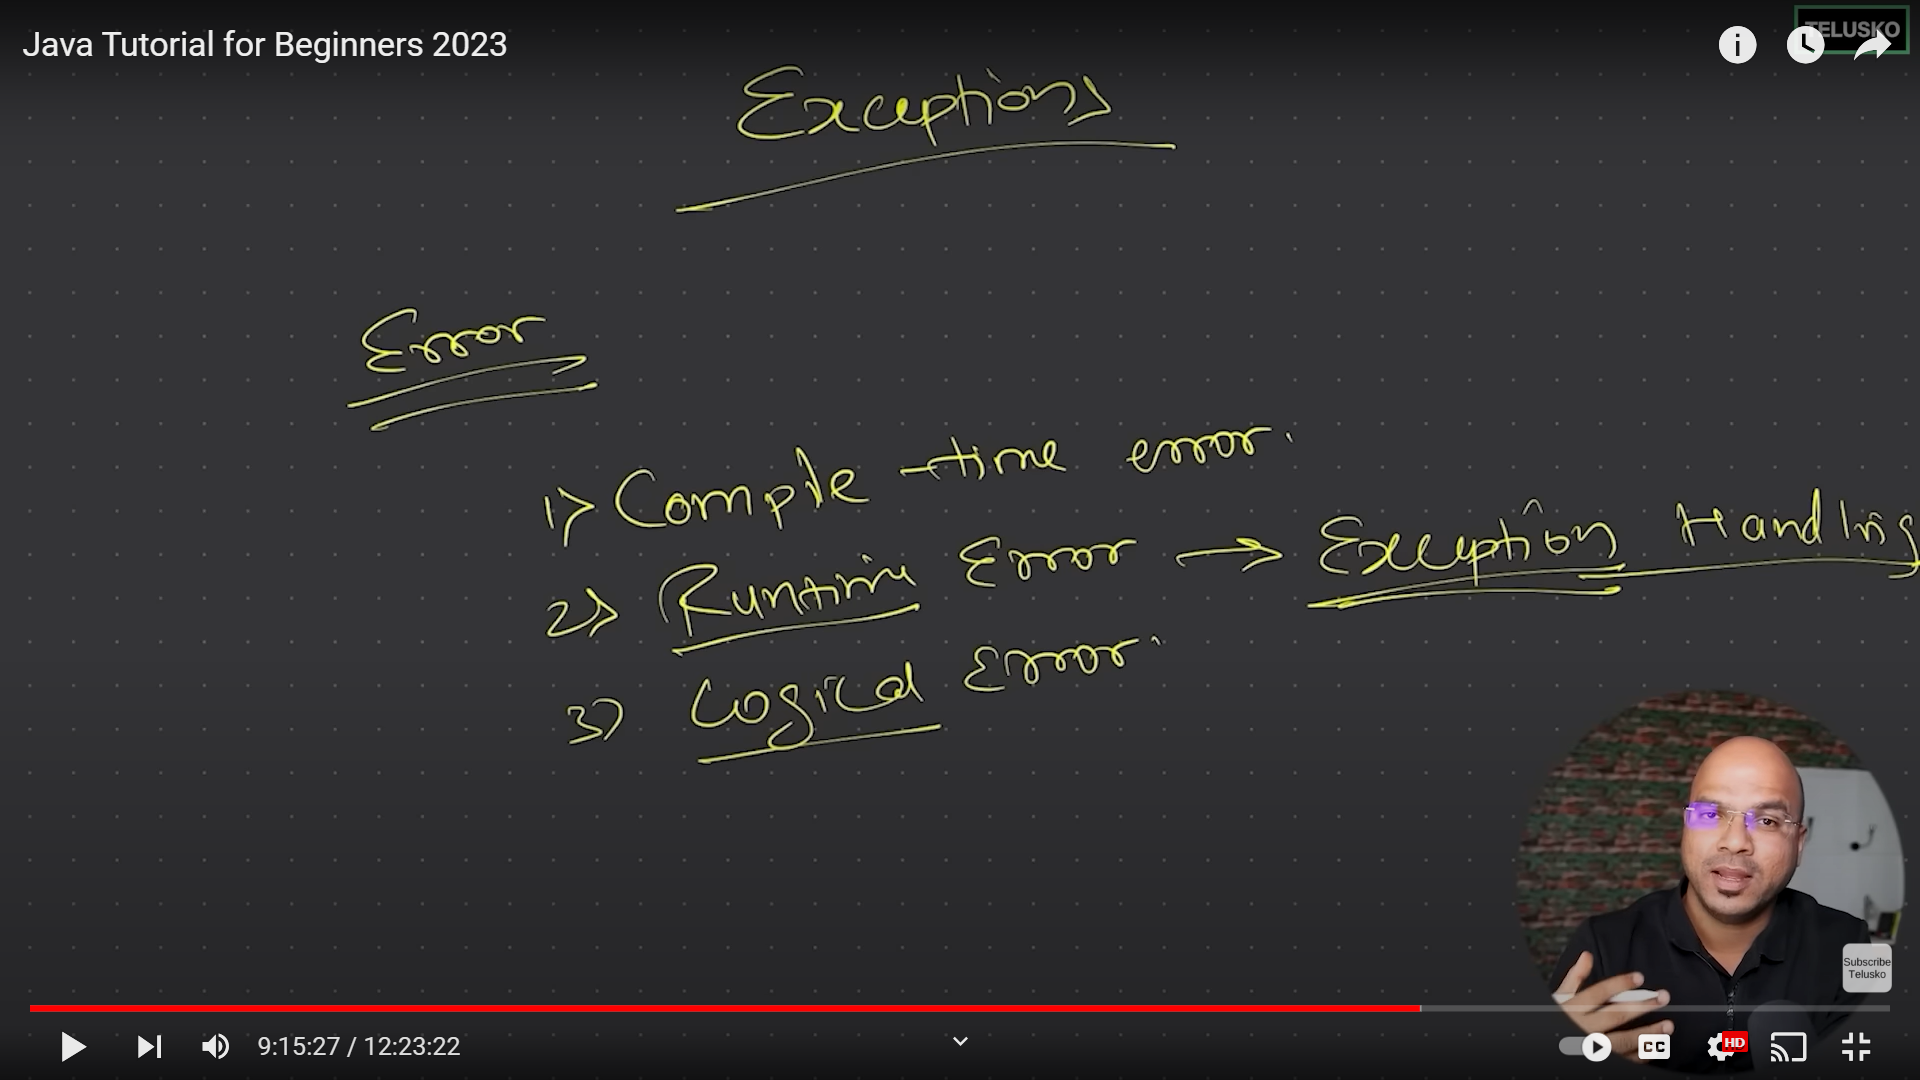 Java Tutorial for Beginners 2023
TELUSKO
Exceptions
Error
1> Compile -time error.
2> Runtime Error → Exception Handling
3) Logical Error.
Subscribe
Telusko
9:15:27 / 12:23:22
CC
HD